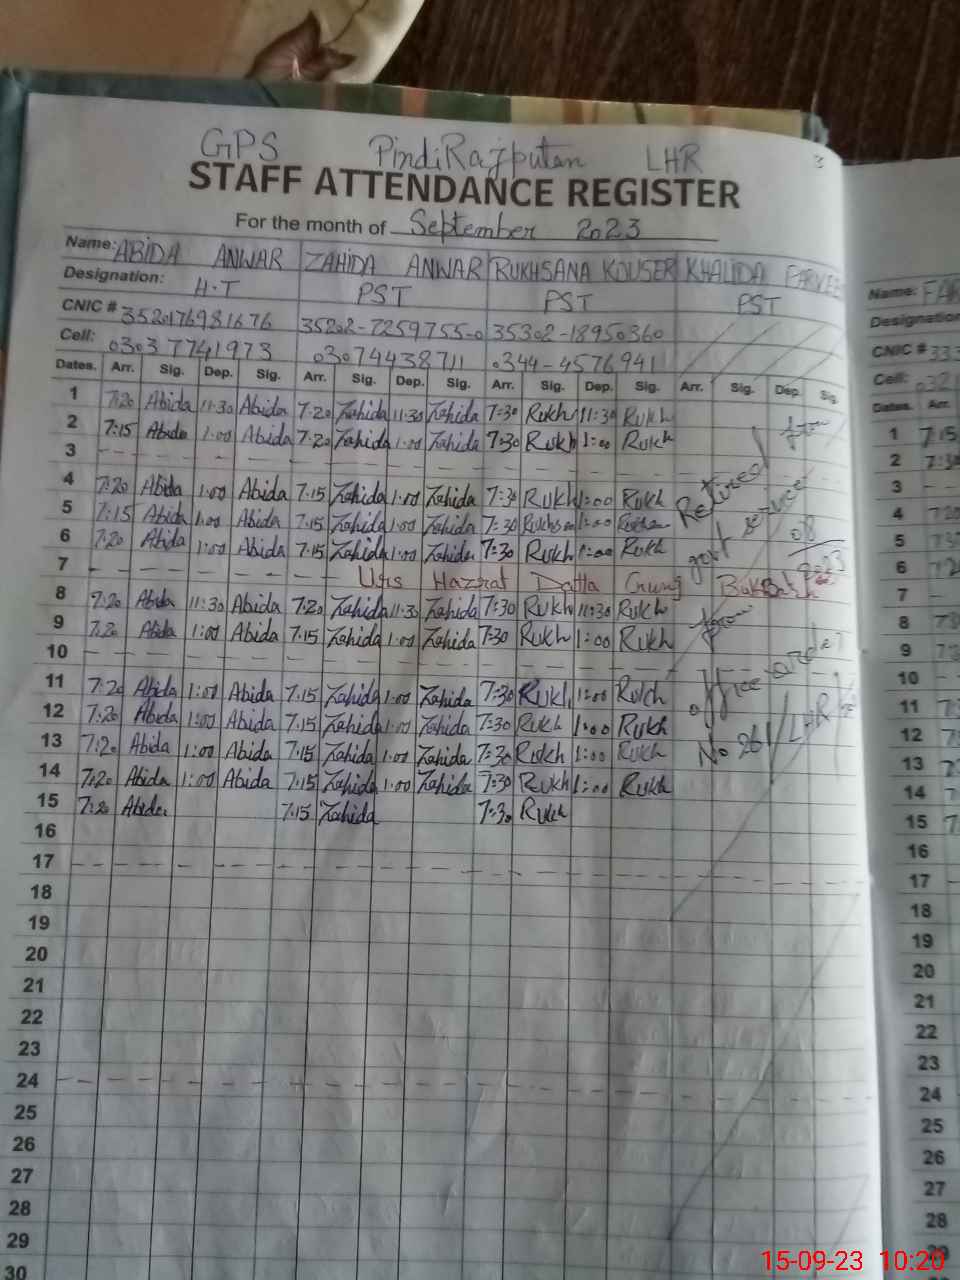 GPS PindiRajputan LHR 3
STAFF ATTENDANCE REGISTER
For the month of September 2023
Name: ABIDA ANWAR ZAHIDA ANWAR RUKHSANA KOUSER KHALIDA PARVEE
Designation: H.T PST PST PST
CNIC # 3520176981676 35202-7259755-0 35302-18950360
Cell: 03037741973 03074438711 0344-4576941
Dates. Arr. Sig. Dep. Sig. Arr. Sig. Dep. Sig. Arr. Sig. Dep. Sig. Arr. Sig. Dep. Sig.
1 7:20 Abida 11:30 Abida 7.20 Zahida 11:30 Zahida 7:30 Rukh 11:30 Rukh
2 7:15 Abida 1:00 Abida 7.20 Zahida 1:00 Zahida 7:30 Rukh 1:00 Rukh
3
4 7:20 Abida 1:00 Abida 7.15 Zahida 1:00 Zahida 7:30 Rukh 1:00 Rukh
5 7:15 Abida 1:00 Abida 7.15 Zahida 1:00 Zahida 7:30 1:00
6 7:20 Abida 1:00 Abida 7.15 Zahida 1:00 Zahida 7:30 Rukh 1:00 Rukh
7 Urs Hazrat Datta Gunj
8 7:20 Abida 11:30 Abida 7:20 Zahida 11:30 Zahida 7:30 Rukh 11:30 Rukh
9 7:20 Abida 1:00 Abida 7.15 Zahida 1:00 Zahida 7:30 Rukh 1:00 Rukh
10
11 7:20 Abida 1:00 Abida 7.15 Zahida 1:00 Zahida 7:30 Rukh 1:00 Rukh
12 7:20 Abida 1:00 Abida 7.15 Zahida 1:00 Zahida 7:30 Rukh 1:00 Rukh
13 7:20 Abida 1:00 Abida 7:15 Zahida 1:00 Zahida 7:30 Rukh 1:00 Rukh
14 7:20 Abida 1:00 Abida 7:15 Zahida 1:00 Zahida 7:30 Rukh 1:00 Rukh
15 7:20 Abida 7.15 Zahida 7:30 Rukh
16
17
18
19
20
21
22
23
24
25
26
27
28
29
30
Retired from
govt service
08
2023
from
office order
No 261/LHR
Name: FAR
Designation
CNIC # 333
Cell: 0321
Dates. Arr.
1 7:15
2 7:30
3
4
5
6
7
8
9
10
11
12
13
14
15
16
17
18
19
20
21
22
23
24
25
26
27
28
29
15-09-23 10:20